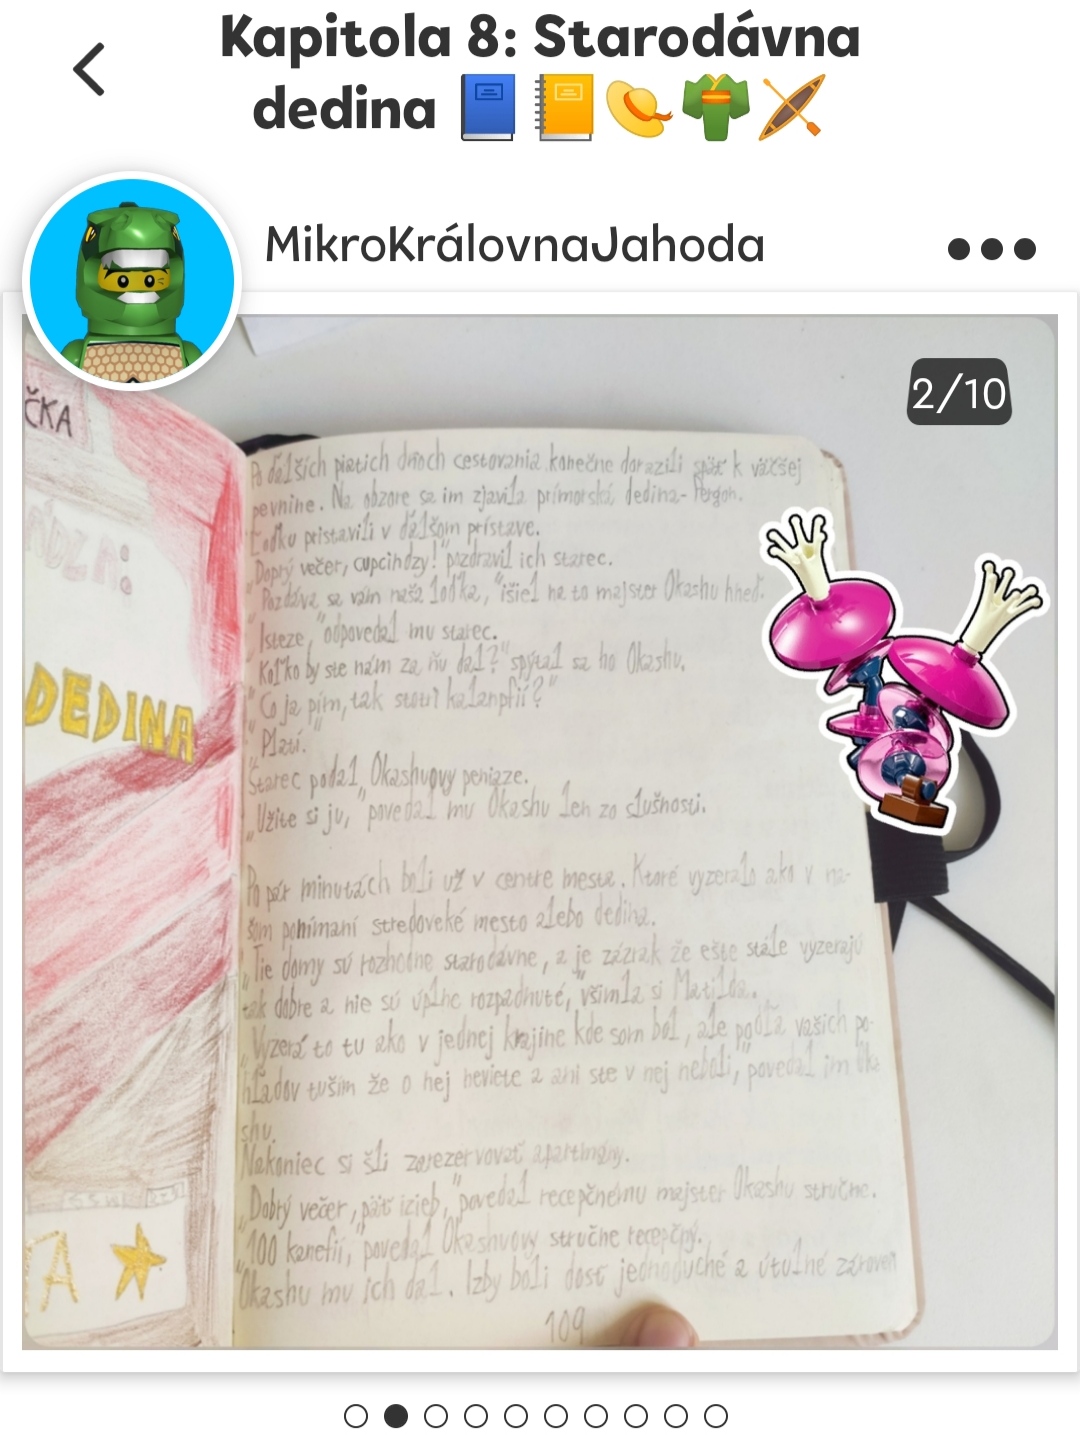 Kapitola 8: Starodávna
dedina
MikroKrálovnaJahoda
2/10
ČKA
DEDINA
Po ďalších piatich dňoch cestovania konečne dorazili späť k väčšej
pevnine. Na obzore sa im zjavila prímorská dedina- Pergon.
Loďku pristavili v ďalšom prístave.
„Dobrý večer, cupcindzy!" pozdravil ich starec.
„Pozdáva sa vám naša loďka, "išiel na to majster Okashu hneď.
„Isteže, "odpovedal mu starec.
„Koľko by ste nám za ňu dal?" spýtal sa ho Okashu.
"Čo ja viem, tak stotri kalanpfií?"
"Platí."
Starec podal Okashuovy peniaze.
„Užite si ju, "povedal mu Okashu len zo slušnosti.
Po pár minutách boli už v centre mesta. Ktoré vyzeralo ako v na-
šom ponímaní stredoveké mesto alebo dedina.
„Tie domy sú rozhodne starodávne, a je zázrak že ešte stále vyzerajú
tak dobre a nie sú úplne rozpadnuté, "všimla si Matilda.
„Vyzerá to tu ako v jednej krajine kde som bol, ale podľa vašich po-
hľadov tuším že o nej neviete a ani ste v nej neboli, "povedal im Oka-
shu.
Nakoniec si šli zarezervovať apartmány.
„Dobrý večer, päť izieb, "povedal recepčnému majster Okashu stručne.
„100 kanefií, "povedal Okashuovy stručne recepčný.
Okashu mu ich dal. Izby boli dosť jednoduché a útulné zároveň
109